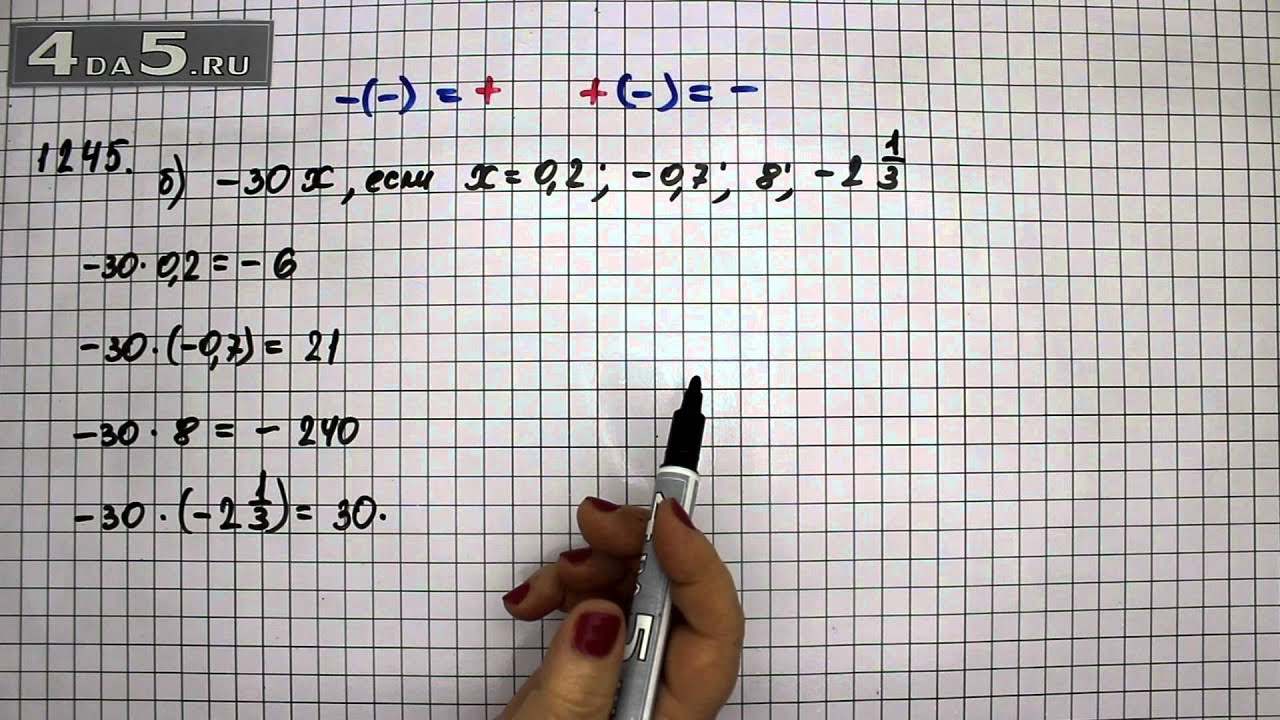 4DA5.RU
-(-) = + +(-) = -
1245. б) -30x, если x = 0,2; -0,7; 8; -2 1/3
-30·0,2 = -6
-30·(-0,7) = 21
-30·8 = -240
-30·(-2 1/3) = 30·